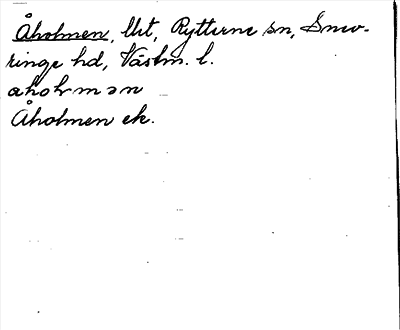 Åholmen, Ut, Rytterne sn, Snev-
ringe hd, Västm. l.
aholmən
Åholmen ek.